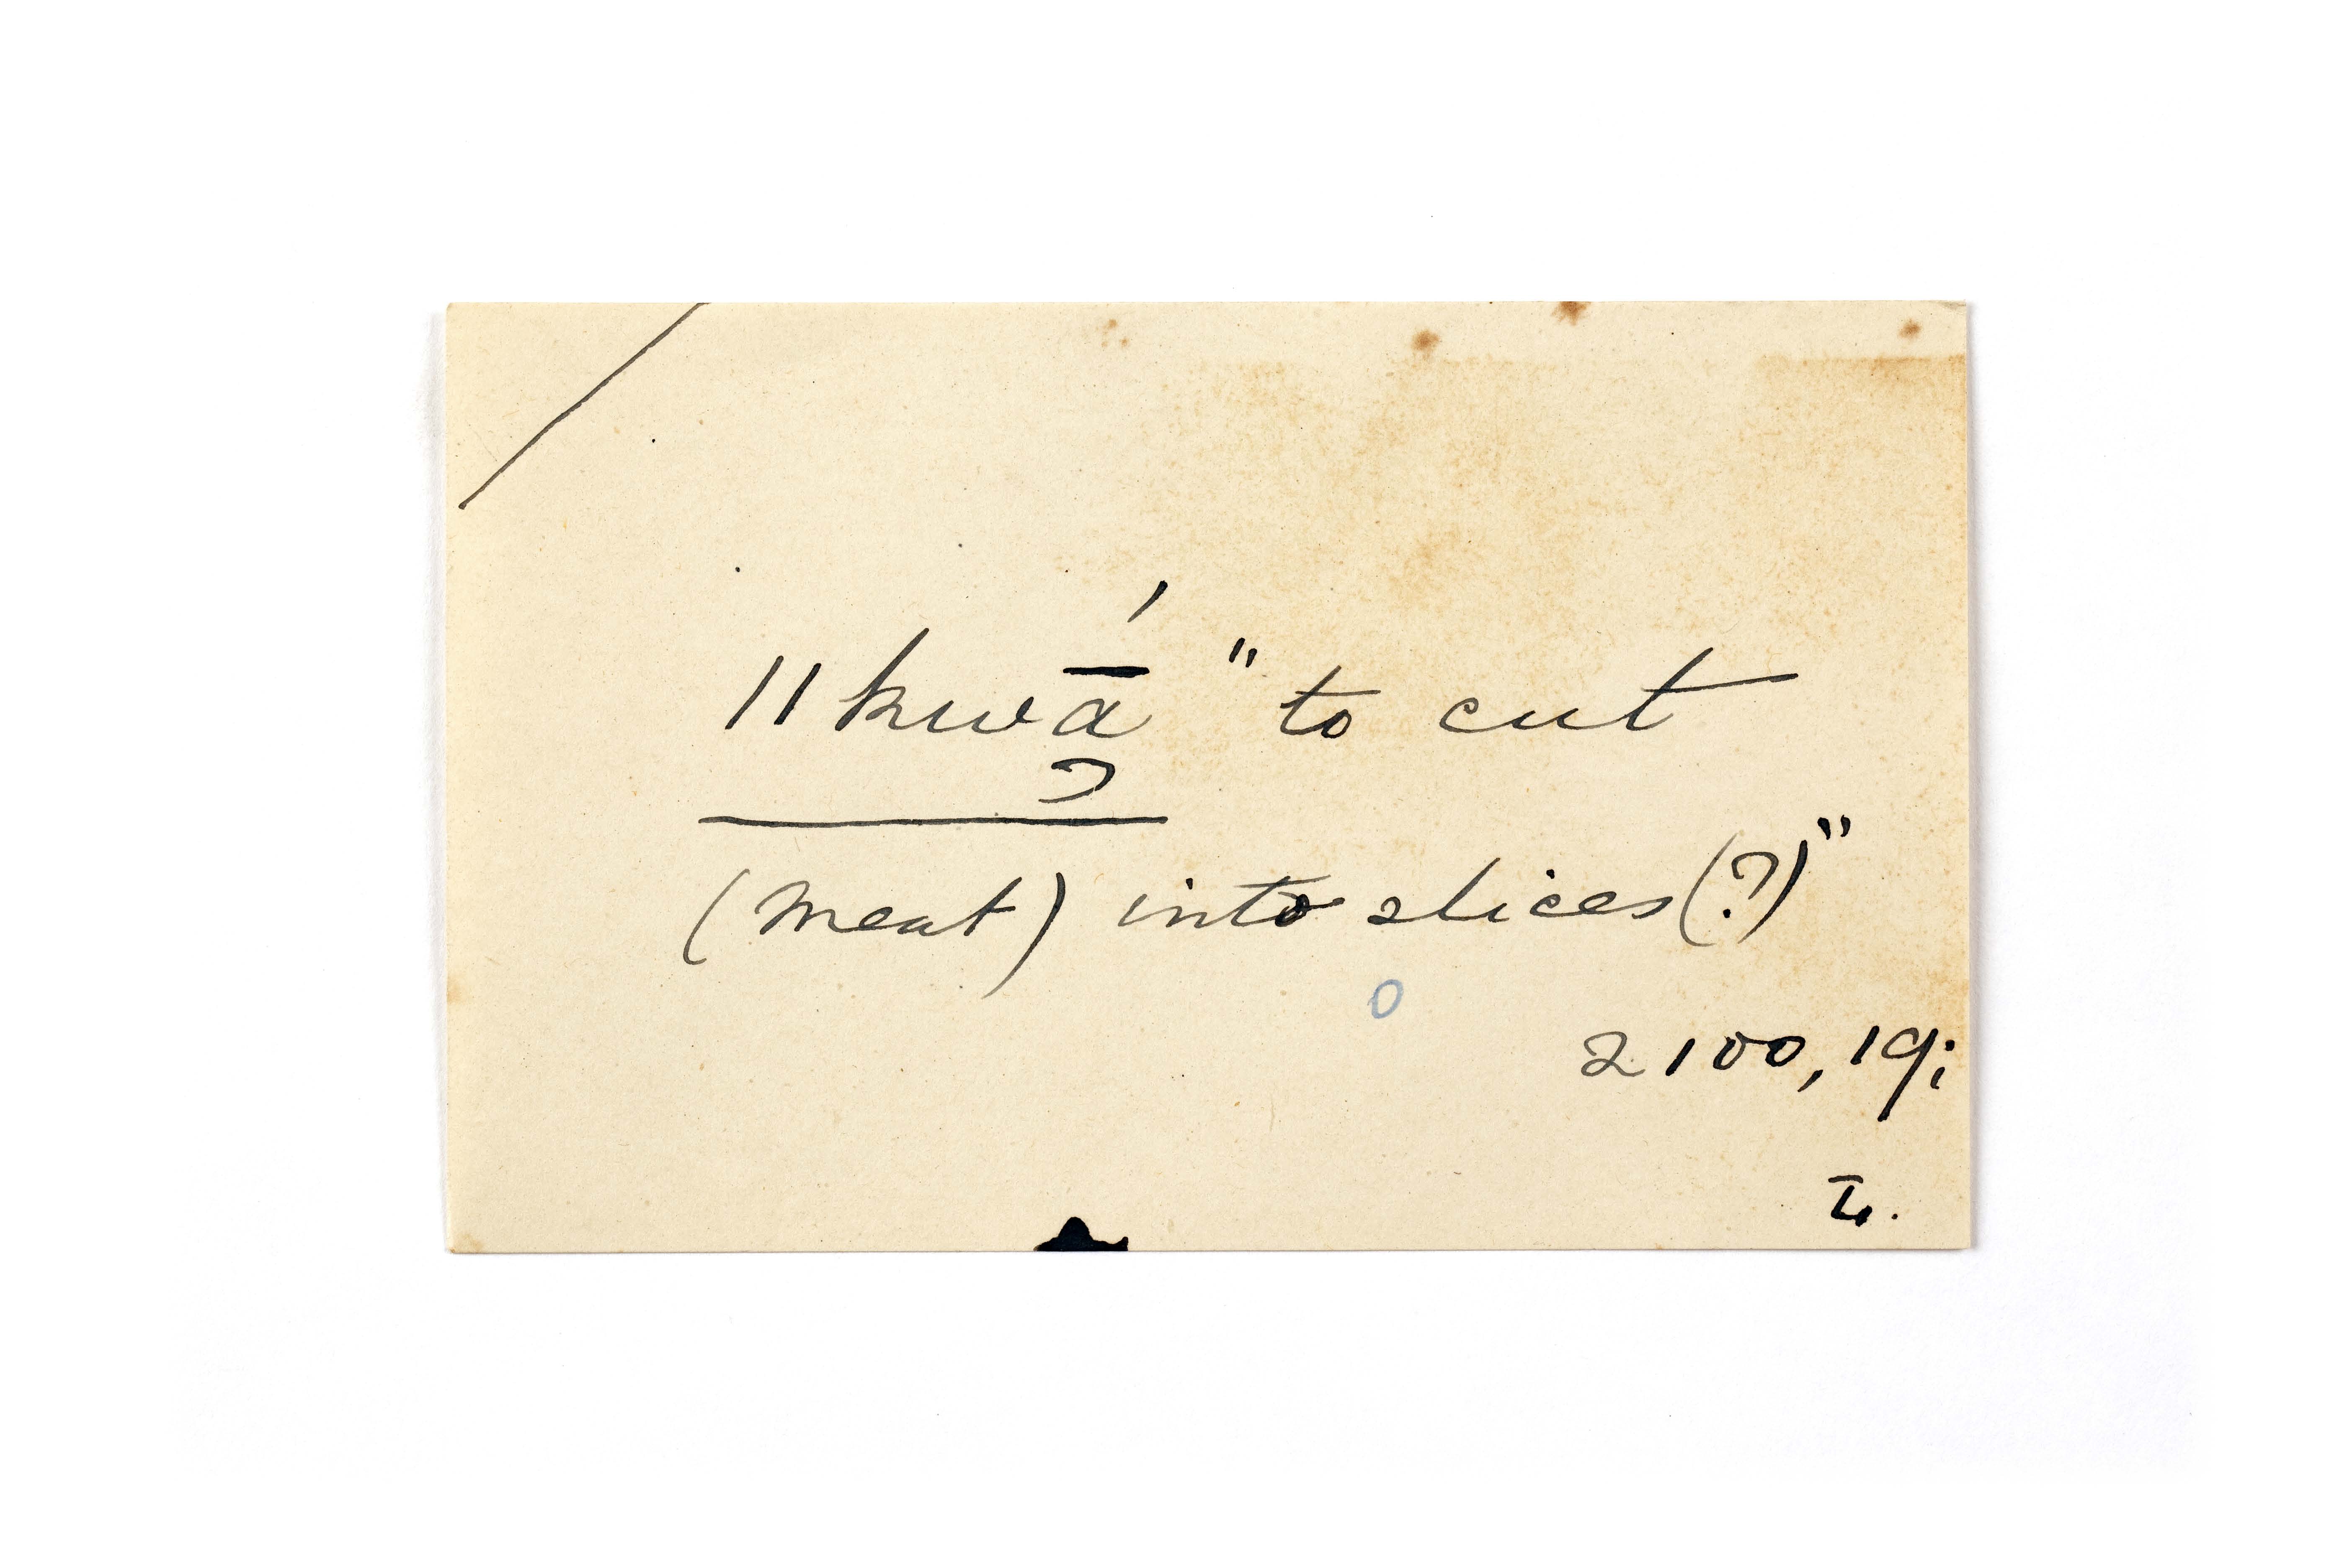 ǁkwā́ʾ "to cut
(meat) into slices(?)"
2100, 19;